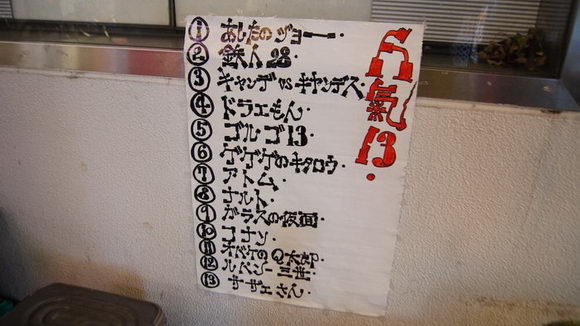 人氣13.
① あしたのジョー・
② 鉄人28・
③ キャンデ vs キャンデス・
④ ドラえもん・
⑤ ゴルゴ13・
⑥ ゲゲゲのキタロウ・
⑦ アトム・
⑧ ナルト・
⑨ ガラスの仮面・
⑩ コナン・
⑪ オバケのQ太郎・
⑫ ルパン 三世・
⑬ サザエさん・